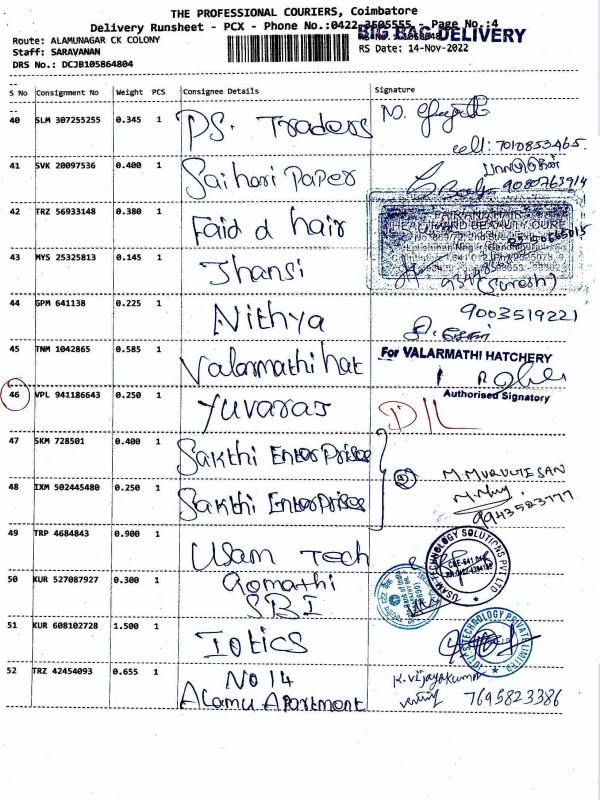 THE PROFESSIONAL COURIERS, Coimbatore
Delivery Runsheet - PCX - Phone No.:0422-3505555 - Page No.:4
BIG BAG DELIVERY
Route: ALAMUNAGAR CK COLONY
Staff: SARAVANAN RS Date: 14-Nov-2022
DRS No.: DCJB105864804
S No Consignment No Weight PCS Consignee Details Signature
40 SLM 307255255 0.345 1 P.S. Traders
cell: 7010853465
41 SVK 20097536 0.400 1 Saihari Paper 9080763914
42 TRZ 56933148 0.380 1 Faid a hair
43 MYS 25325813 0.145 1 Jhansi
(Suresh)
44 GPM 641138 0.225 1 Nithya 9003519221
45 TNM 1042865 0.585 1 Valarmathi hat For VALARMATHI HATCHERY
Authorised Signatory
46 VPL 941186643 0.250 1 Yuvaraj DIL
47 SKM 728501 0.400 1 Sakthi EnterPrises
M. MURUGESAN
48 IXM 502445480 0.250 1 Sakthi EnterPrises
9943523777
49 TRP 4684843 0.900 1 Usam Tech
USAM TECHNOLOGY SOLUTIONS PVT LTD
50 KUR 527087927 0.300 1 Gomathi
SBI
51 KUR 608102728 1.500 1 Iotics
TECHNOLOGY PRIVATE LIMITED
52 TRZ 42454093 0.655 1 No 14 K. Vijayakumar
Alamu Apartment 7695823386